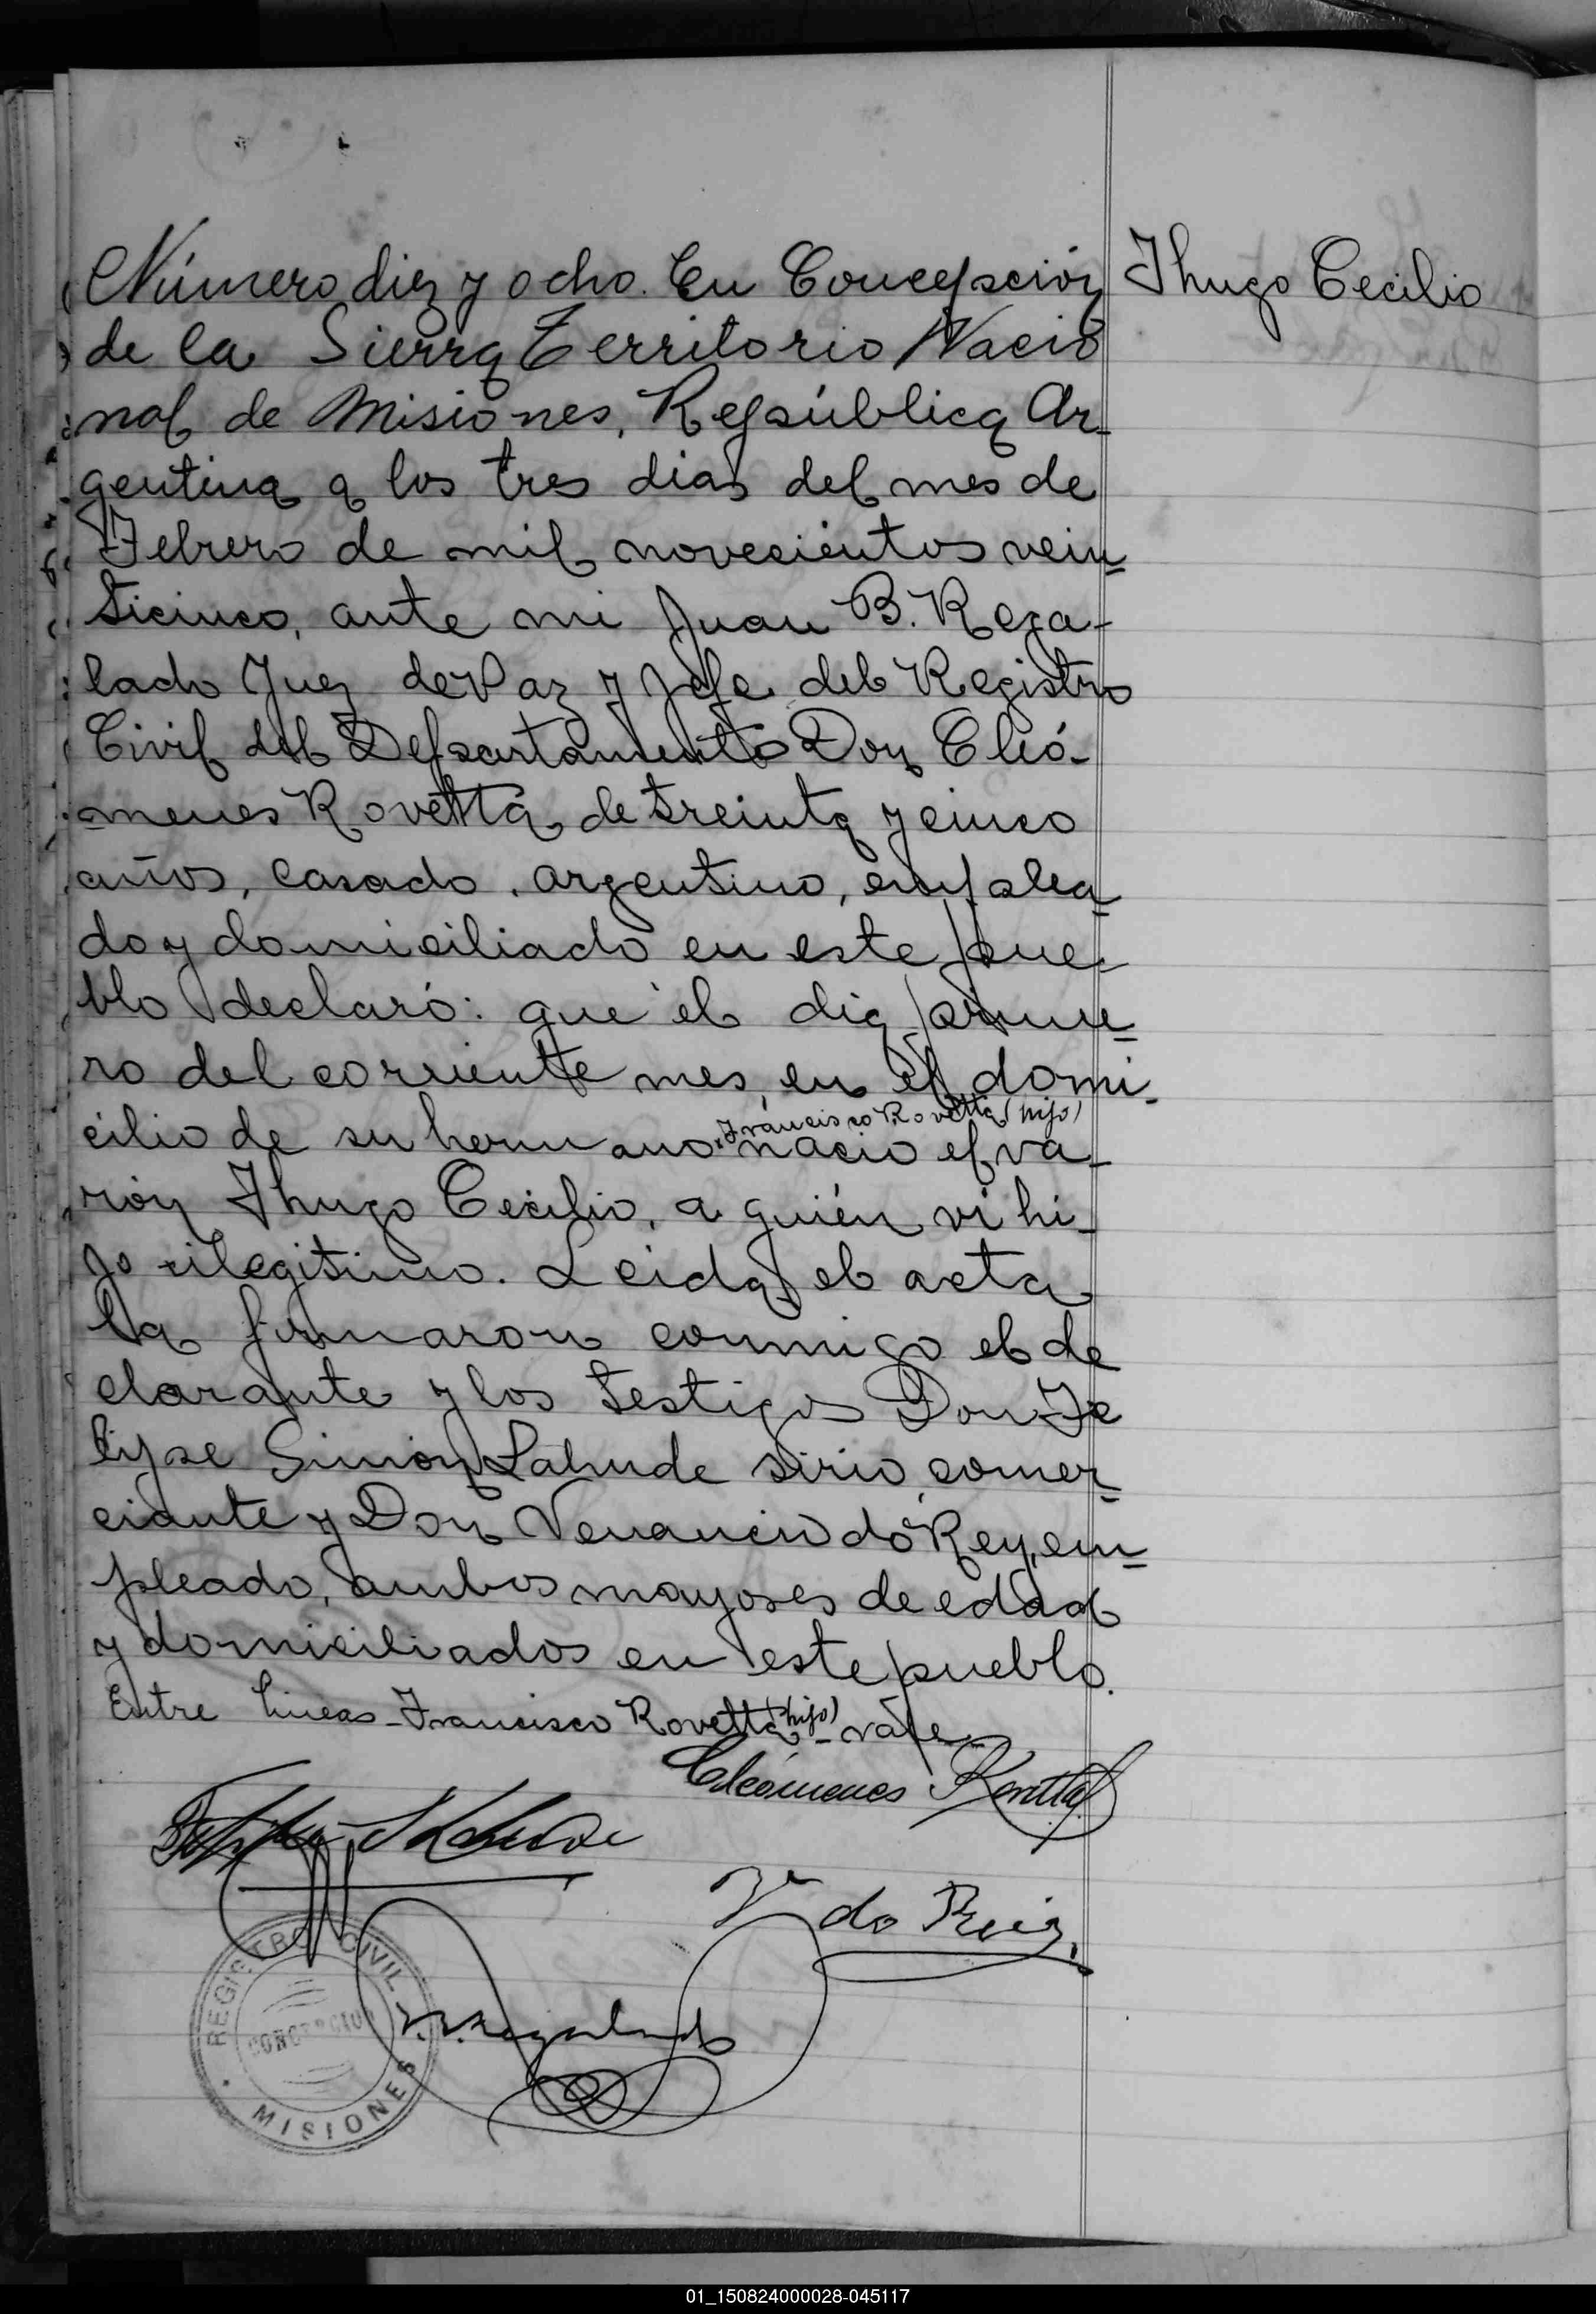 Número diez y ocho. En Concepción
Thugo Cecilio
de la Sierra Territorio Nacio
nal de Misiones, República Ar-
gentina a los tres dias del mes de
Febrero de mil novecientos vein-
ticinco, ante mi Juan B. Rega-
lado Juez de Paz y Jefe del Registro
Civil del Departamento Don Cleó-
menes Rovetta, de treinta y cinco
años, casado, argentino, emplea-
do y domiciliado en este pue-
blo declaró: que el dia prime-
ro del corriente mes, en el domi-
Francisco Rovetta (hijo)
cilio de su hermano nació el va-
rón Thugo Cecilio, a quién vi hi-
jo ilegitimo. Leida el acta
la firmaron conmigo el de
clarante y los testigos Don Fe
lipe Simón Lahude sirio, comer-
ciante y Don Venancio do Rey, em-
pleado, ambos mayores de edad
y domiciliados en este pueblo.
Entre lineas - Francisco Rovetta (hijo) - vale
Cleómenes Rovetta
V. do Rey
REGISTRO CIVIL
CONCEPCION
MISIONES
01_150824000028-045117